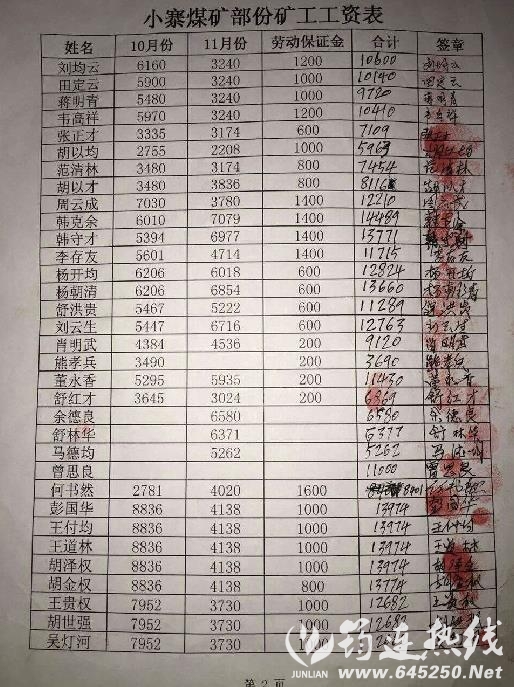 小寨煤矿部份矿工工资表
姓名 10月份 11月份 劳动保证金 合计 签章
刘均云 6160 3240 1200 10600 刘均云
田定云 5900 3240 1000 10140 田定云
蒋明青 5480 3240 1000 9720 蒋明青
韦高祥 5970 3240 1200 10410
张正才 3335 3174 600 7109
胡以均 2755 2208 1000 5963
范清林 3480 3174 800 7454 范清林
胡以才 3480 3836 800 8116 胡以才
周云成 7030 3780 1400 12210
韩克余 6010 7079 1400 14489
韩守才 5394 6977 1400 13771
李存友 5601 4714 1400 11715 李存友
杨开均 6206 6018 600 12824 杨开均
杨朝清 6206 6854 600 13660 杨朝清
舒洪贵 5467 5222 600 11289 舒洪贵
刘云生 5447 6716 600 12763 刘云生
肖明武 4384 4536 200 9120 肖明武
熊孝兵 3490 200 3690
董永香 5295 5935 200 11430
舒红才 3645 3024 200 6869 舒红才
余德良 6580 6580 余德良
舒林华 6371 6371 舒林华
马德均 5262 5262 马德均
曾思良 11000 曾思良
何书然 2781 4020 1600 8401
彭国华 8836 4138 1000 13974 彭国华
王付均 8836 4138 1000 13974 王付均
王道林 8836 4138 1000 13974 王道林
胡泽权 8836 4138 1000 13974
胡金权 8836 4138 800 13774
王贵权 7952 3730 1000 12682
胡世强 7952 3730 1000 12682
吴灯河 7952 3730 1000
筠连热线
JUNLIAN www.645250.Net
第 2 页